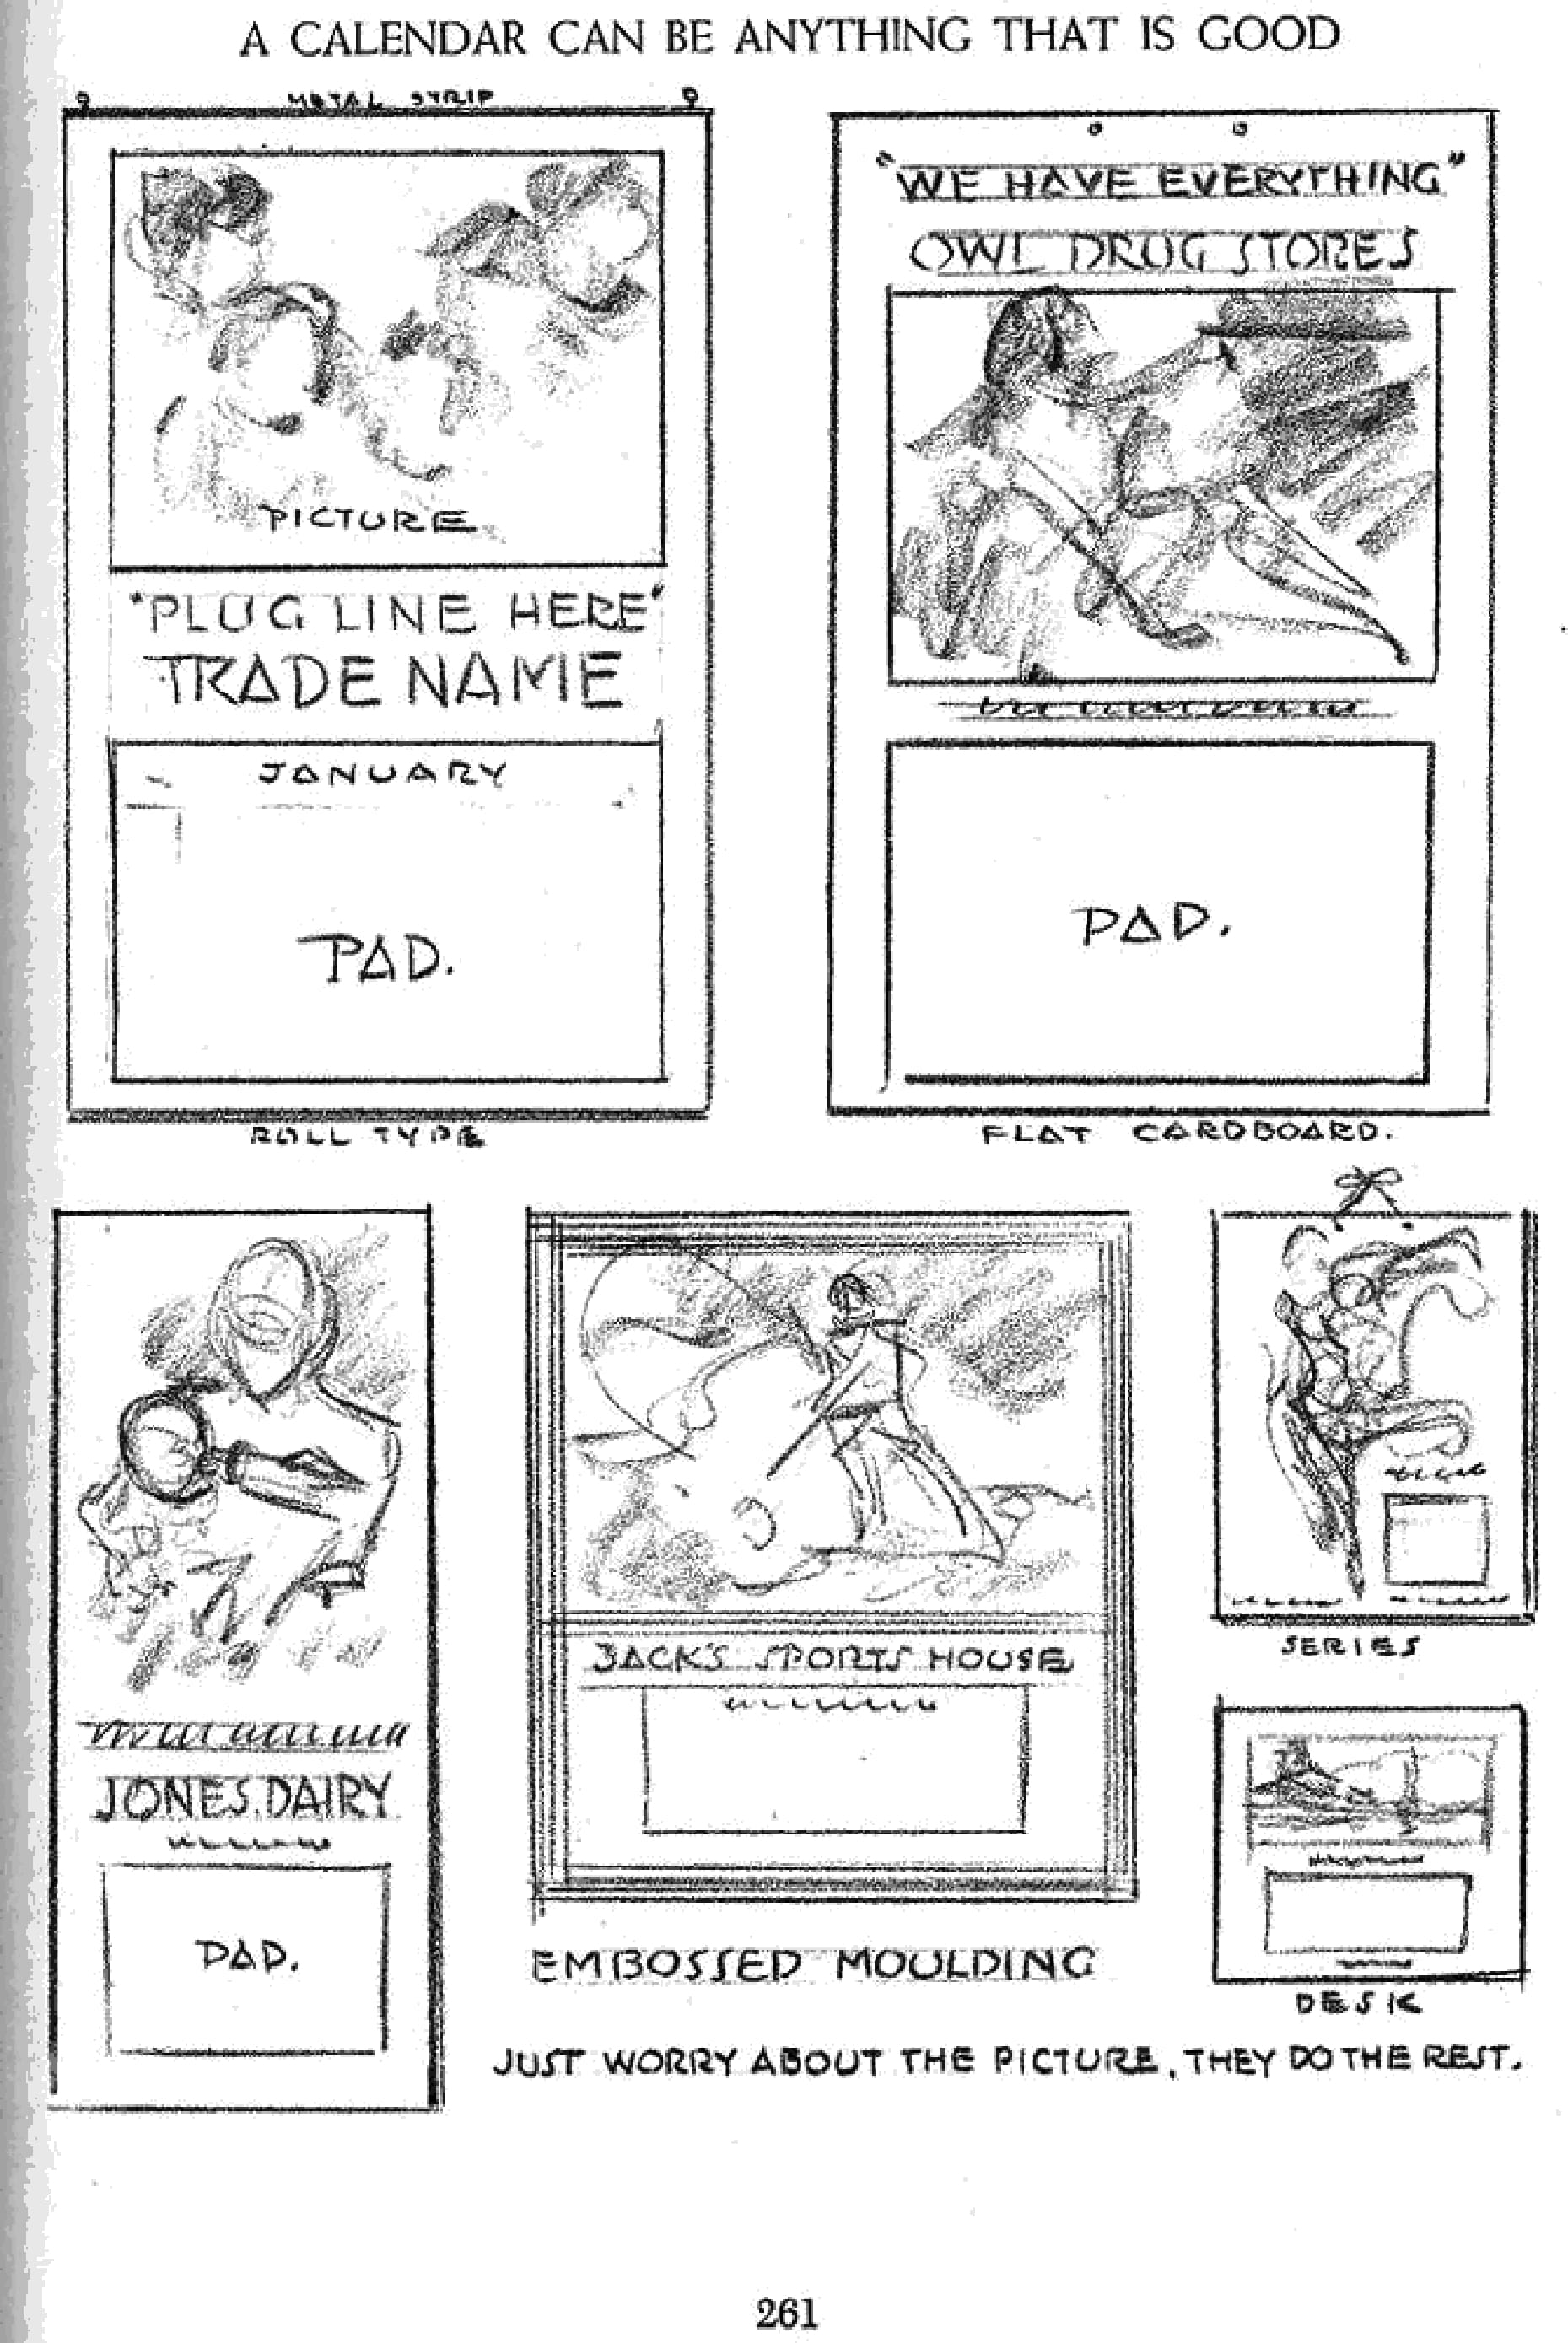 A CALENDAR CAN BE ANYTHING THAT IS GOOD
METAL STRIP
PICTURE
"PLUG LINE HERE"
TRADE NAME
JANUARY
PAD.
ROLL TYPE
"WE HAVE EVERYTHING"
OWL DRUG STORES
PAD.
FLAT CARDBOARD.
JONES DAIRY
PAD.
JACK'S SPORTS HOUSE
EMBOSSED MOULDING
SERIES
DESK
JUST WORRY ABOUT THE PICTURE, THEY DO THE REST.
261